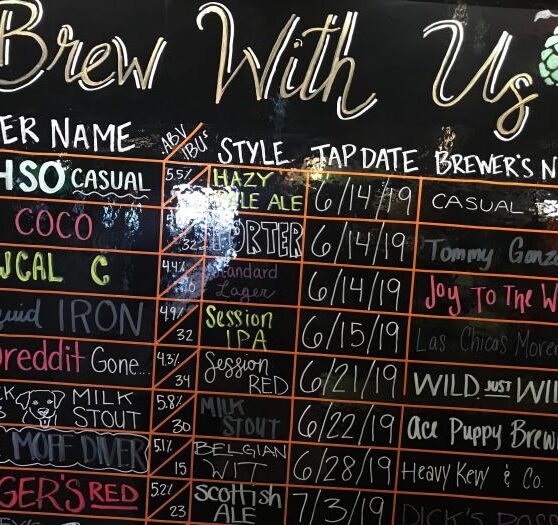 Brew With Us
ER NAME ABV IBU'S STYLE TAP DATE BREWER'S N
HSO CASUAL 5.5% HAZY ALE 6/14/19 CASUAL
COCO 32 PORTER 6/14/19 Tommy Gonz
JCAL C 4.4% Standard Lager 6/14/19 Joy To The W
quid IRON 4.9% 32 Session IPA 6/15/19 Las Chicas More
reddit Gone... 4.3% 34 Session RED 6/21/19 WILD JUST WIL
CK MILK STOUT 5.8% 30 MILK STOUT 6/22/19 Ace Puppy Brew
MOFF DIVER 5.1% 15 BELGIAN WIT 6/28/19 Heavy Kevy & Co.
GER'S RED 5.2% 23 SCOTTISH ALE 7/3/19 DICK'S